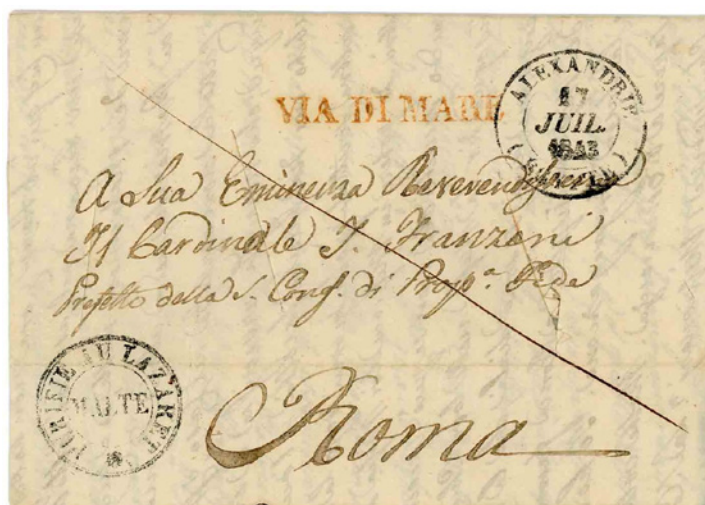 VIA DI MARE
ALEXANDRIE
17
JUIL.
1843
(EGYPTE)
A Sua Eminenza Reverendissima
Il Cardinale J. Franzoni
Prefetto della S. Cong. di Propa. Fide
PURIFIÉ AU LAZARET
MALTE
Roma